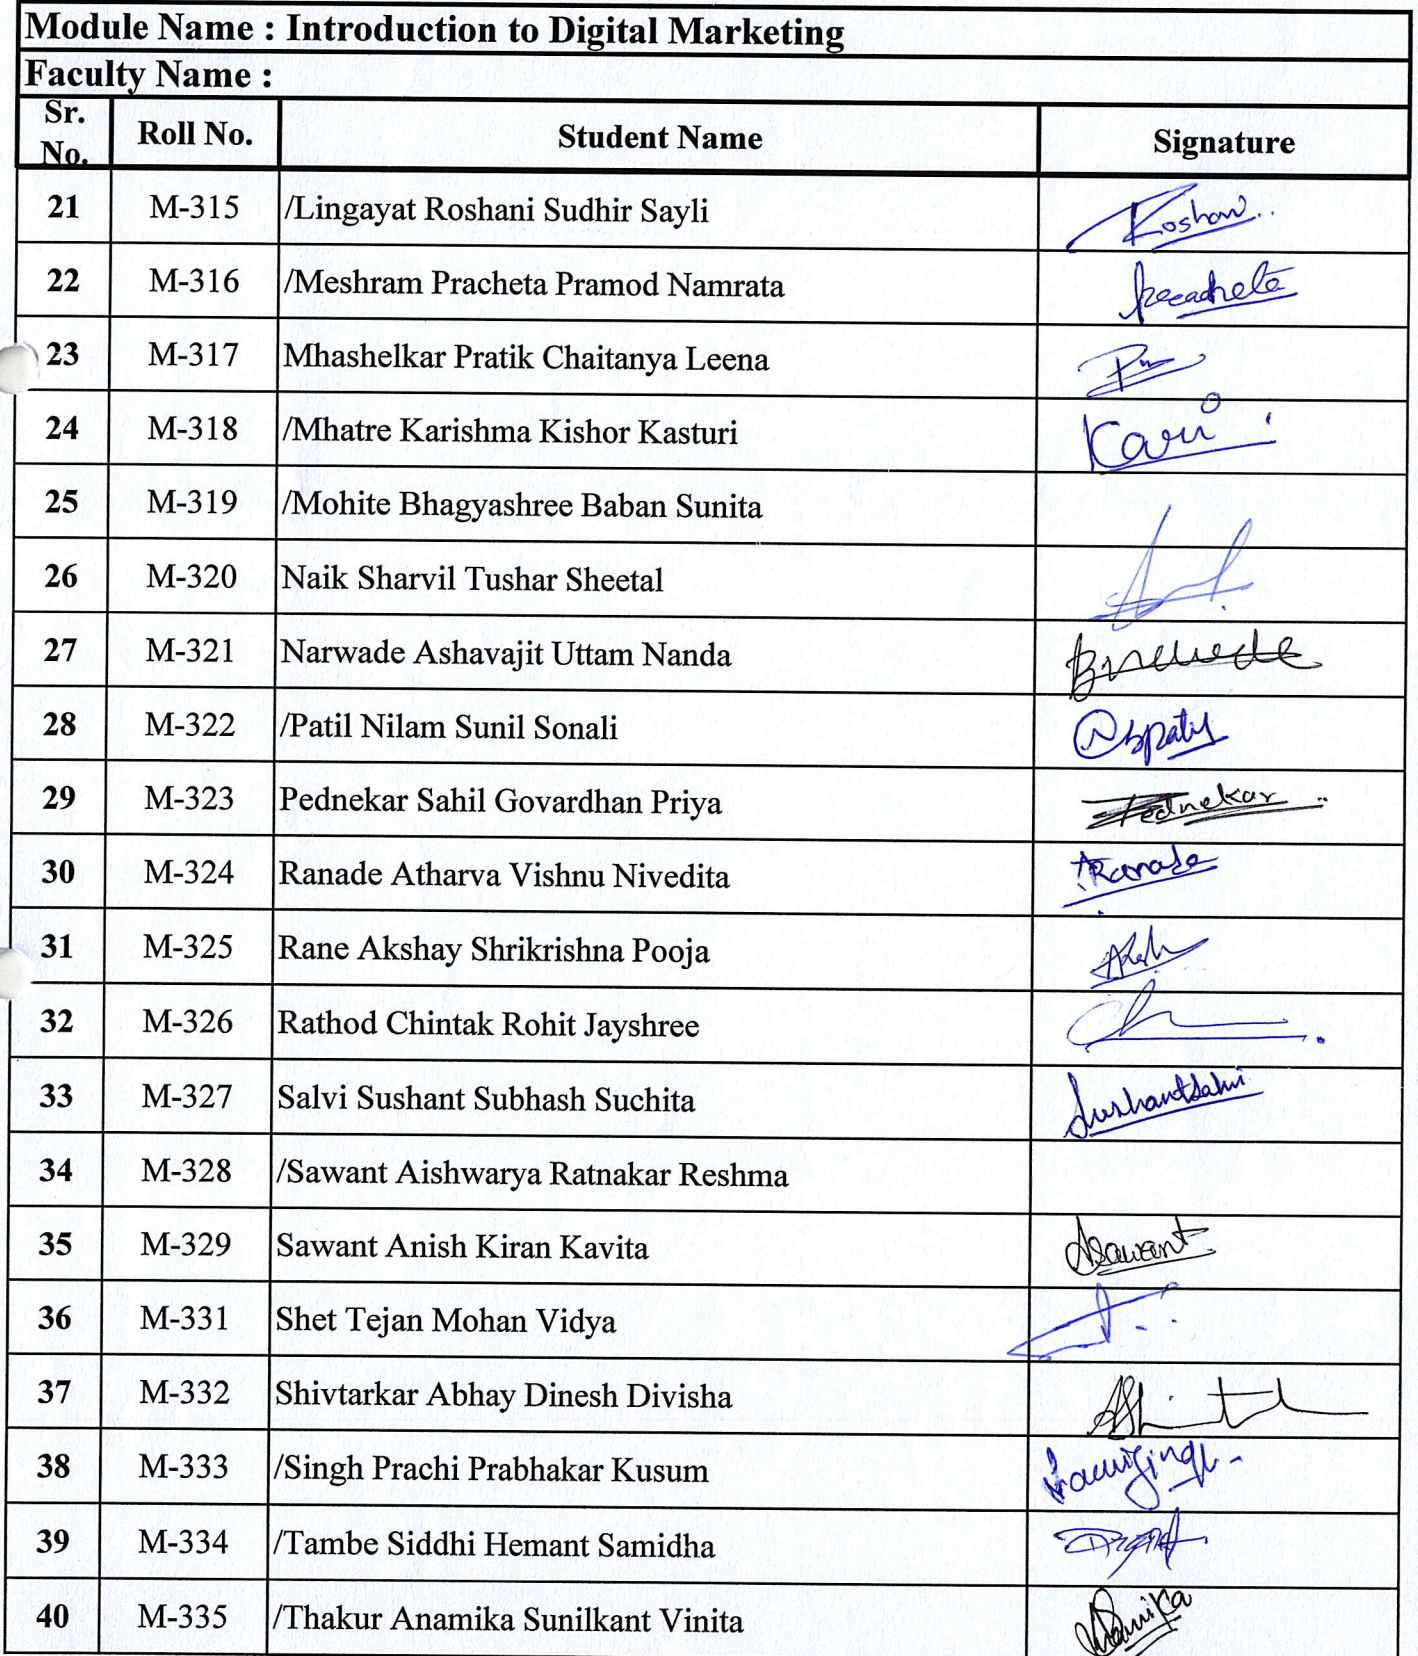 Module Name : Introduction to Digital Marketing
Faculty Name :
Sr. No. Roll No. Student Name Signature
21 M-315 /Lingayat Roshani Sudhir Sayli
22 M-316 /Meshram Pracheta Pramod Namrata
23 M-317 Mhashelkar Pratik Chaitanya Leena
24 M-318 /Mhatre Karishma Kishor Kasturi
25 M-319 /Mohite Bhagyashree Baban Sunita
26 M-320 Naik Sharvil Tushar Sheetal
27 M-321 Narwade Ashavajit Uttam Nanda
28 M-322 /Patil Nilam Sunil Sonali
29 M-323 Pednekar Sahil Govardhan Priya Pednekar
30 M-324 Ranade Atharva Vishnu Nivedita ARanade
31 M-325 Rane Akshay Shrikrishna Pooja
32 M-326 Rathod Chintak Rohit Jayshree
33 M-327 Salvi Sushant Subhash Suchita SushantSalvi
34 M-328 /Sawant Aishwarya Ratnakar Reshma
35 M-329 Sawant Anish Kiran Kavita ASawant
36 M-331 Shet Tejan Mohan Vidya
37 M-332 Shivtarkar Abhay Dinesh Divisha
38 M-333 /Singh Prachi Prabhakar Kusum
39 M-334 /Tambe Siddhi Hemant Samidha
40 M-335 /Thakur Anamika Sunilkant Vinita